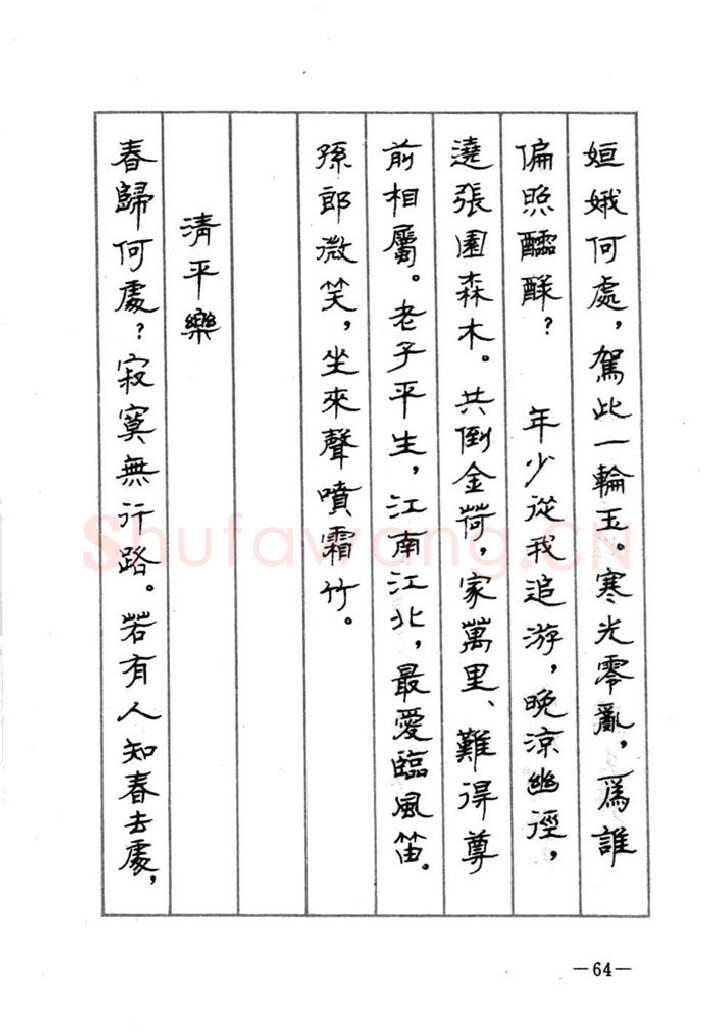 姮娥何處，駕此一輪玉。寒光零亂，爲誰
偏照醽醁？　年少從我追游，晚涼幽徑，
遶張園森木。共倒金荷，家萬里、難得尊
前相屬。老子平生，江南江北，最愛臨風笛。
孫郎微笑，坐來聲噴霜竹。
清平樂
春歸何處？寂寞無行路。若有人知春去處，
—64—
Shufawang.CN